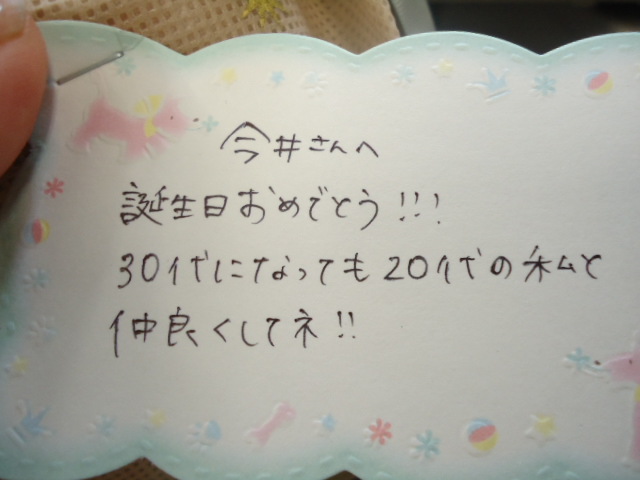 今井さんへ
誕生日おめでとう!!!
30代になっても20代の私と
仲良くしてネ!!